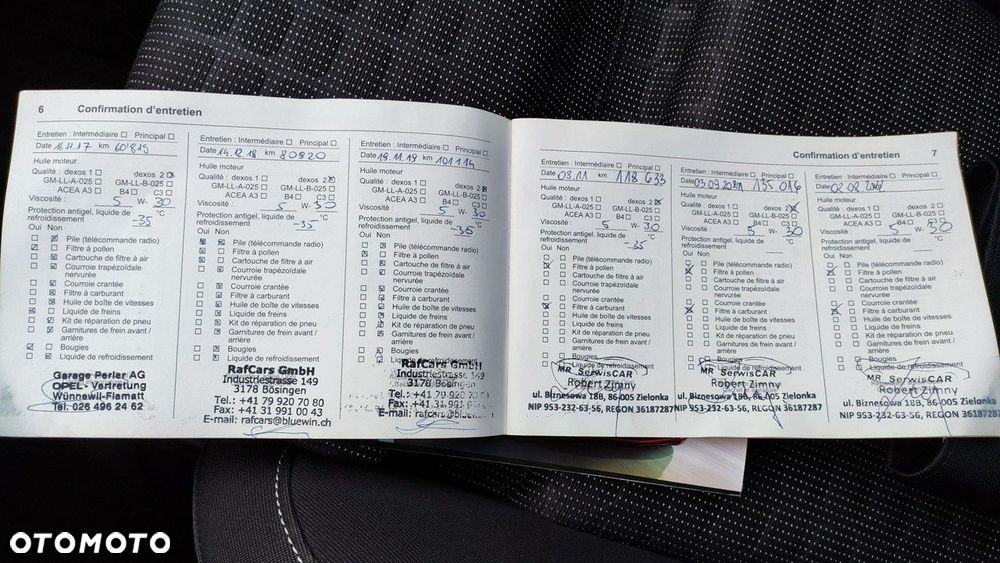 6 Confirmation d'entretien
Entretien : Intermédiaire Principal
Date 16.11.17 km 60'815
Huile moteur
Qualité : dexos 1 dexos 2
GM-LL-A-025 GM-LL-B-025
ACEA A3 B4 C3
Viscosité : 5 W- 30
Protection antigel, liquide de
refroidissement -35 °C
Oui Non
Pile (télécommande radio)
Filtre à pollen
Cartouche de filtre à air
Courroie trapézoïdale
nervurée
Courroie crantée
Filtre à carburant
Huile de boîte de vitesses
Liquide de freins
Kit de réparation de pneu
Garnitures de frein avant /
arrière
Bougies
Liquide de refroidissement
Garage Perler AG
OPEL - Vertretung
Wünnewil-Flamatt
Tel. 026 496 24 62
Entretien : Intermédiaire Principal
Date 14.12.18 km 80820
Huile moteur
Qualité : dexos 1 dexos 2
GM-LL-A-025 GM-LL-B-025
ACEA A3 B4 C3
Viscosité : 5 W- 30
Protection antigel, liquide de
refroidissement -35 °C
Oui Non
Pile (télécommande radio)
Filtre à pollen
Cartouche de filtre à air
Courroie trapézoïdale
nervurée
Courroie crantée
Filtre à carburant
Huile de boîte de vitesses
Liquide de freins
Kit de réparation de pneu
Garnitures de frein avant /
arrière
Bougies
Liquide de refroidissement
RafCars GmbH
Industriestrasse 149
3178 Bösingen
Tel.: +41 79 920 70 80
Fax: +41 31 991 00 43
E-mail: rafcars@bluewin.ch
Entretien : Intermédiaire Principal
Date 19.11.19 km 101114
Huile moteur
Qualité : dexos 1 dexos 2
GM-LL-A-025 GM-LL-B-025
ACEA A3 B4 C3
Viscosité : 5 W- 30
Protection antigel, liquide de
refroidissement -35 °C
Oui Non
Pile (télécommande radio)
Filtre à pollen
Cartouche de filtre à air
Courroie trapézoïdale
nervurée
Courroie crantée
Filtre à carburant
Huile de boîte de vitesses
Liquide de freins
Kit de réparation de pneu
Garnitures de frein avant /
arrière
Bougies
Liquide de refroidissement
RafCars GmbH
Industriestrasse 149
3178 Bösingen
Tel.: +41 79 920
Fax: +41 31 991
E-mail: rafcars@bluewin
Confirmation d'entretien 7
Entretien : Intermédiaire Principal
Date 03.11 km 118 633
Huile moteur
Qualité : dexos 1 dexos 2
GM-LL-A-025 GM-LL-B-025
ACEA A3 B4 C3
Viscosité 5 W- 30
Protection antigel, liquide de
refroidissement -35 °C
Oui Non
Pile (télécommande radio)
Filtre à pollen
Cartouche de filtre à air
Courroie trapézoïdale
nervurée
Courroie crantée
Filtre à carburant
Huile de boîte de vitesses
Liquide de freins
Kit de réparation de pneu
Garnitures de frein avant /
arrière
Bougies
Liquide de refroidissement
MR SerwisCAR
Robert Zimny
ul. Biznesowa 18B, 86-005 Zielonka
NIP 953-232-63-56, REGON 36187287
Entretien : Intermédiaire Principal
Date 03.09 km 135 016
Huile moteur
Qualité : dexos 1 dexos 2
GM-LL-A-025 GM-LL-B-025
ACEA A3 B4 C3
Viscosité 5 W- 30
Protection antigel, liquide de
refroidissement °C
Oui Non
Pile (télécommande radio)
Filtre à pollen
Cartouche de filtre à air
Courroie trapézoïdale
nervurée
Courroie crantée
Filtre à carburant
Huile de boîte de vitesses
Liquide de freins
Kit de réparation de pneu
Garnitures de frein avant /
arrière
Bougies
MR SerwisCAR
Robert Zimny
ul. Biznesowa 18B, 86-005 Zielonka
NIP 953-232-63-56, REGON 36187287
Entretien : Intermédiaire Principal
Date 02 08 km
Huile moteur
Qualité : dexos 1 dexos 2
GM-LL-A-025 GM-LL-B-025
ACEA A3 B4 C3
Viscosité 5 W- 30
Protection antigel, liquide de
refroidissement °C
Oui Non
Pile (télécommande radio)
Filtre à pollen
Cartouche de filtre à air
Courroie trapézoïdale
nervurée
Courroie crantée
Filtre à carburant
Huile de boîte de vitesses
Liquide de freins
Kit de réparation de pneu
Garnitures de frein avant /
arrière
Bougies
MR SerwisCAR
Robert Zimny
ul. Biznesowa 18B, 86-005 Zielonka
NIP 953-232-63-56, REGON 36187287
OTOMOTO